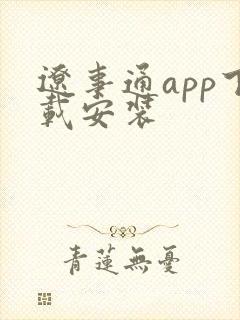 遼事通app下
載安裝
青蓮無憂